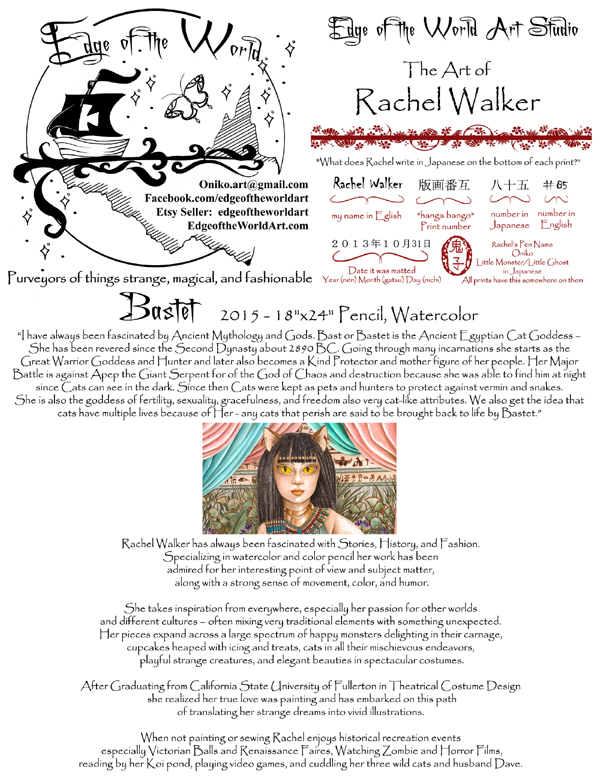 Edge of the World
Oniko.art@gmail.com
Facebook.com/edgeoftheworldart
Etsy Seller: edgeoftheworldart
EdgeoftheWorldArt.com
Purveyors of things strange, magical, and fashionable
Edge of the World Art Studio
The Art of
Rachel Walker
"What does Rachel write in Japanese on the bottom of each print?"
Rachel Walker 版画番互 八十五 # 85
my name in Eglish "hanga bango" Print number number in Japanese number in English
2013年10月31日
Date it was matted
Year (nen) Month (gatsu) Day (nichi)
鬼子
Rachel's Pen Name
Oniko
Little Monster/Little Ghost
in Japanese
All prints have this somewhere on them
Bastet 2015 - 18"x24" Pencil, Watercolor
"I have always been fascinated by Ancient Mythology and Gods. Bast or Bastet is the Ancient Egyptian Cat Goddess –
She has been revered since the Second Dynasty about 2890 BC. Going through many incarnations she starts as the
Great Warrior Goddess and Hunter and later also becomes a Kind Protector and mother figure of her people. Her Major
Battle is against Apep the Giant Serpent for of the God of Chaos and destruction because she was able to find him at night
since Cats can see in the dark. Since then Cats were kept as pets and hunters to protect against vermin and snakes.
She is also the goddess of fertility, sexuality, gracefulness, and freedom also very cat-like attributes. We also get the idea that
cats have multiple lives because of Her - any cats that perish are said to be brought back to life by Bastet."
Rachel Walker has always been fascinated with Stories, History, and Fashion.
Specializing in watercolor and color pencil her work has been
admired for her interesting point of view and subject matter,
along with a strong sense of movement, color, and humor.
She takes inspiration from everywhere, especially her passion for other worlds
and different cultures – often mixing very traditional elements with something unexpected.
Her pieces expand across a large spectrum of happy monsters delighting in their carnage,
cupcakes heaped with icing and treats, cats in all their mischievous endeavors,
playful strange creatures, and elegant beauties in spectacular costumes.
After Graduating from California State University of Fullerton in Theatrical Costume Design
she realized her true love was painting and has embarked on this path
of translating her strange dreams into vivid illustrations.
When not painting or sewing Rachel enjoys historical recreation events
especially Victorian Balls and Renaissance Faires, Watching Zombie and Horror Films,
reading by her Koi pond, playing video games, and cuddling her three wild cats and husband Dave.